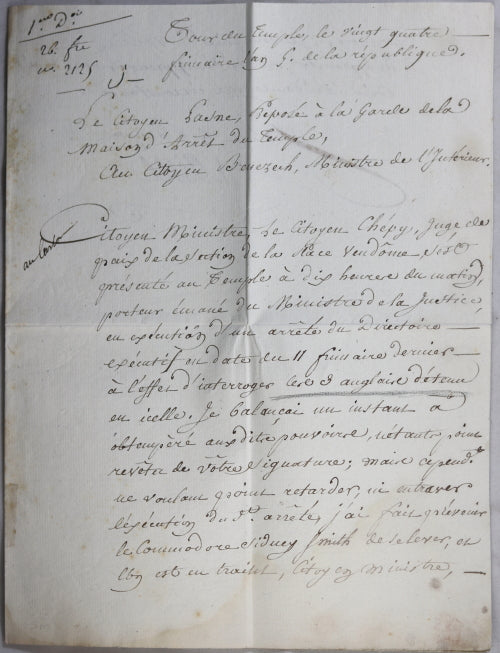 1ere Don
26 fre
no. 2125
Tour du Temple, le vingt quatre
frimaire l'an 5. de la république.
Le Citoyen Lasne, Préposé à la Garde de la
Maison d'Arrêt du Temple,
Au Citoyen Benezech, Ministre de l'Intérieur.
Citoyen Ministre, Le Citoyen Chépy, Juge de
paix de la Section de la Place Vendôme s'est
présenté au Temple à dix heures du matin,
porteur du Ministre de la Justice,
en exécution d'un arrêté du Directoire
exécutif en date du 11 frimaire dernier
à l'effet d'interroger les 3 anglais détenu
en icelle. Je balançai un instant à
obtempéré auxdits pouvoirs, n'étants point
revêtu de vôtre Signature; mais cependt.
ne voulant point retarder, ni entraver
l'exécution du dt. arrêté, j'ai fait prévenir
le Commodore Sidney Smith de se lever, et
l'on est en traint, Citoyen Ministre,